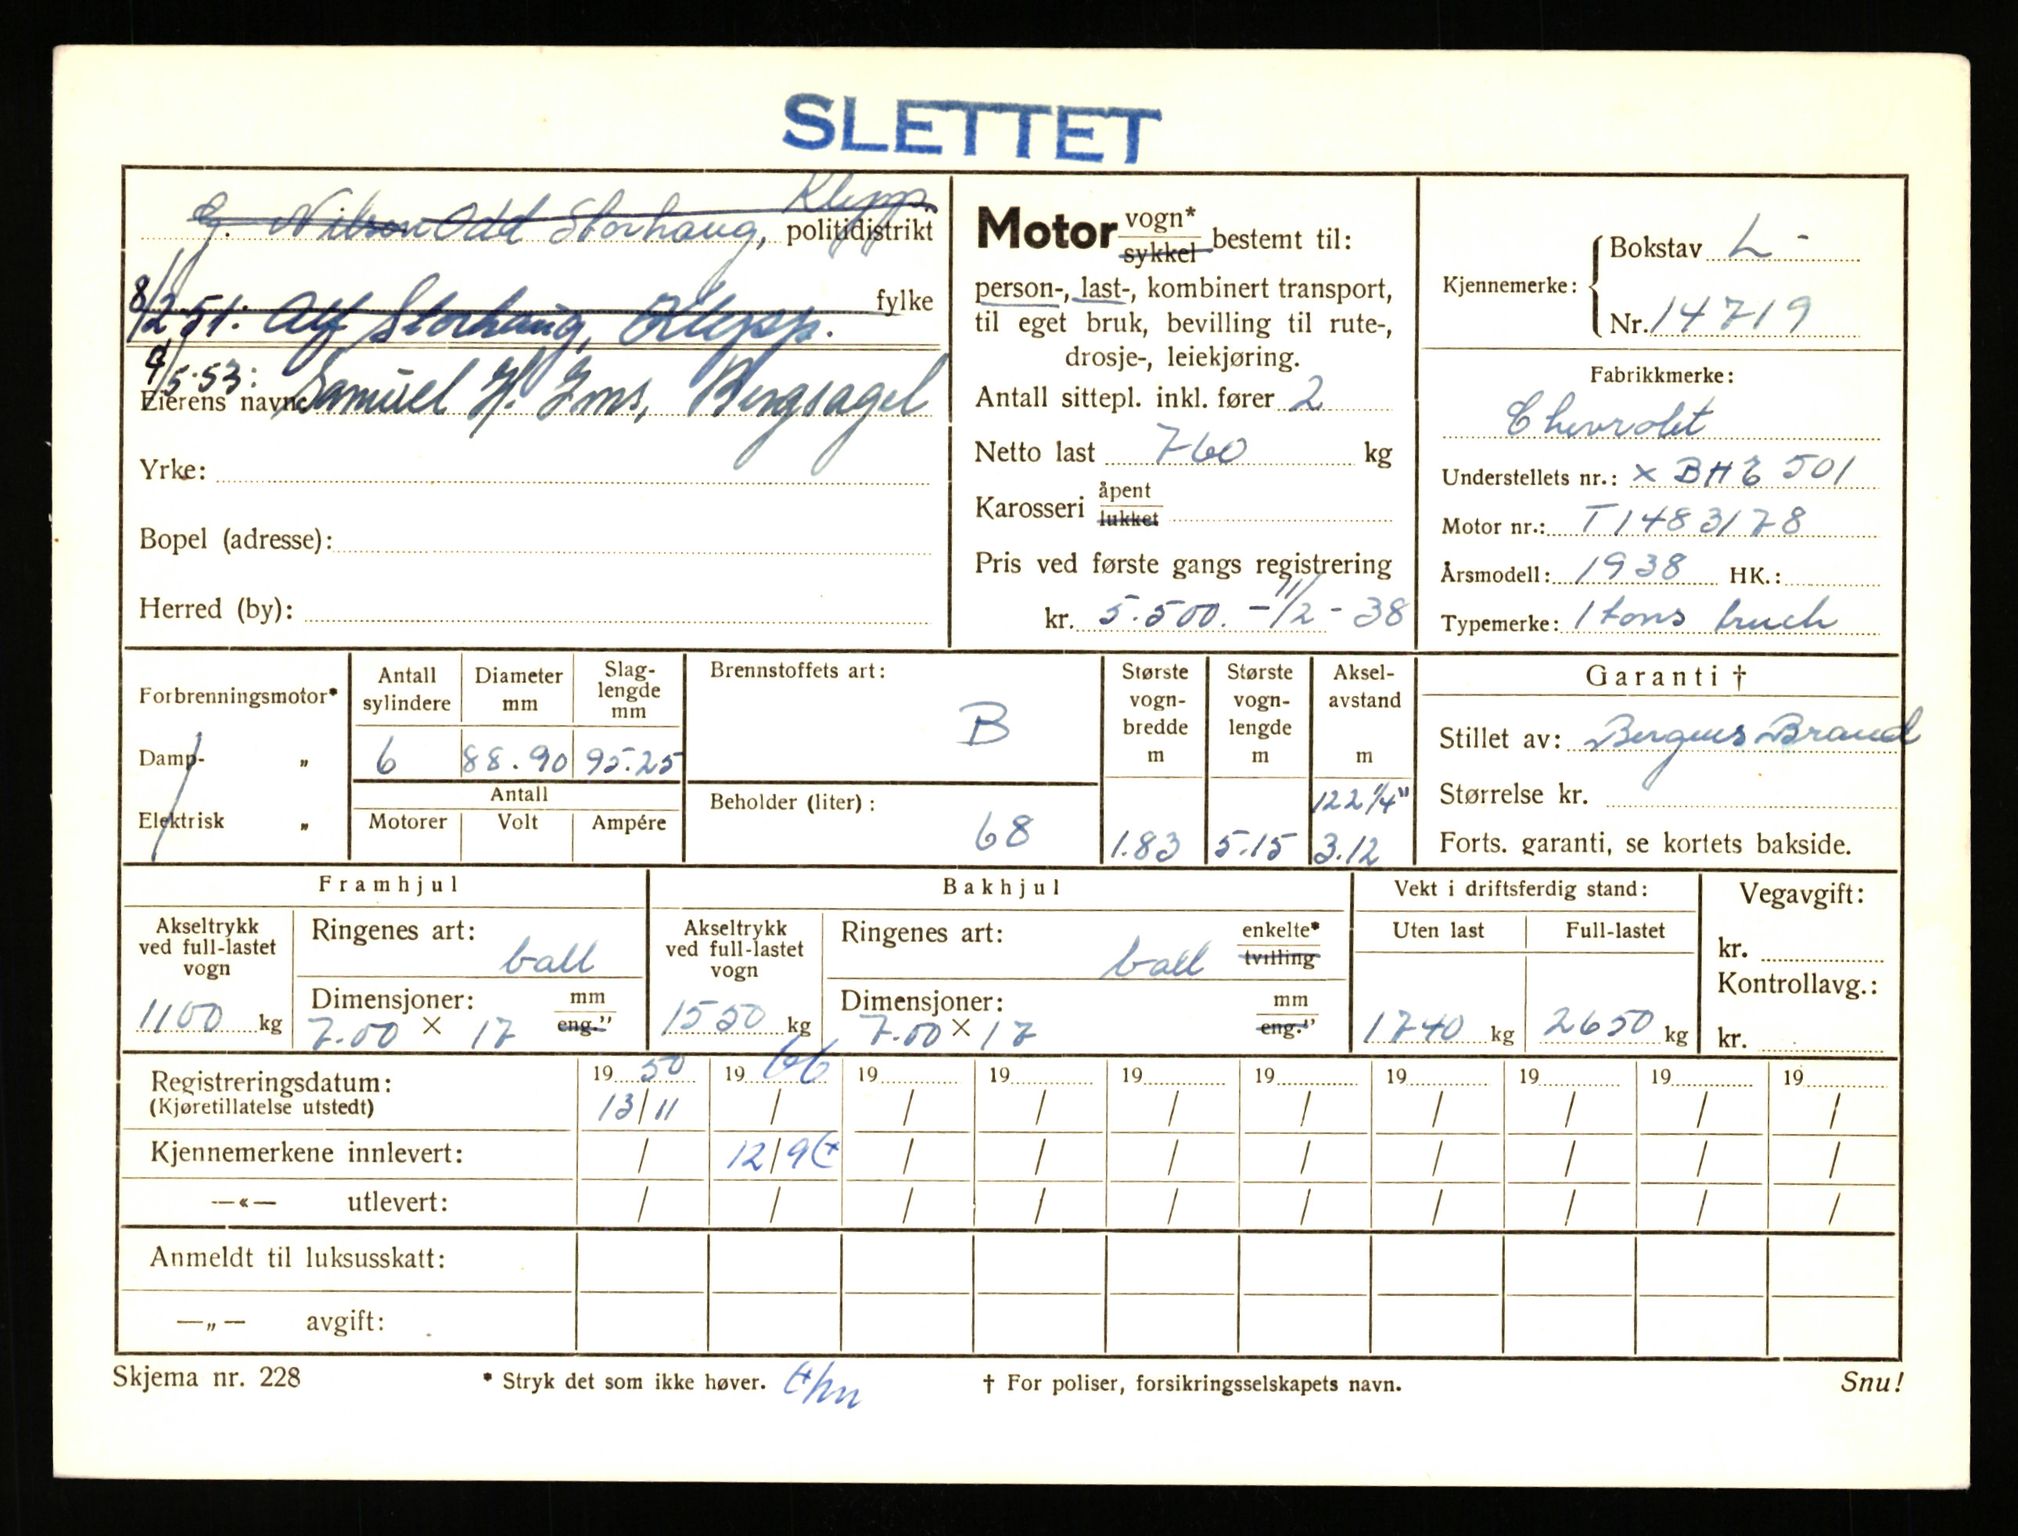 SLETTET
Nilsen Odd Storhaug, Klepp.
politidistrikt
8/2 51. Alf Storhaug, Klepp.
fylke
9/5-53: Samuel H. Ims, Bergsagel
Eierens navn:
Yrke:
Bopel (adresse):
Herred (by):
Motor vogn* sykkel bestemt til:
person-, last-, kombinert transport,
til eget bruk, bevilling til rute-,
drosje-, leiekjøring.
Antall sittepl. inkl. fører 2
Netto last 760 kg
Karosseri åpent lukket
Pris ved første gangs registrering
kr. 5.500. - 11/2 - 38
Kjennemerke: Bokstav L-
Nr. 14719
Fabrikkmerke:
Chevrolet
Understellets nr.: x BH 6 501
Motor nr.: T1483178
Årsmodell: 1938 HK.:
Typemerke: 1 tons truck
Forbrenningsmotor*
Damp- „
Elektrisk „
Antall sylindere
Diameter mm
Slag-lengde mm
6 88.90 95.25
Antall
Motorer Volt Ampére
Brennstoffets art:
B
Beholder (liter):
68
Største vogn-bredde m
1.83
Største vogn-lengde m
5.15
Aksel-avstand m
122 1/4"
3.12
Garanti †
Stillet av: Bergens Brand
Størrelse kr.
Forts. garanti, se kortets bakside.
Framhjul
Akseltrykk ved full-lastet vogn
1100 kg
Ringenes art: ball
Dimensjoner: mm eng."
7.00 × 17
Bakhjul
Akseltrykk ved full-lastet vogn
1550 kg
Ringenes art: ball enkelte* tvilling
Dimensjoner: mm eng."
7.00 × 17
Vekt i driftsferdig stand:
Uten last Full-lastet
1740 kg 2650 kg
Vegavgift:
kr.
Kontrollavg.:
kr.
Registreringsdatum: 19 50 19 66 19 19 19 19 19 19 19 19
(Kjøretillatelse utstedt) 13/11 / / / / / / / / /
Kjennemerkene innlevert: / 12/9 / / / / / / / /
—«— utlevert: / / / / / / / / / /
Anmeldt til luksusskatt:
—„— avgift:
Skjema nr. 228
* Stryk det som ikke høver.
† For poliser, forsikringsselskapets navn.
Snu!